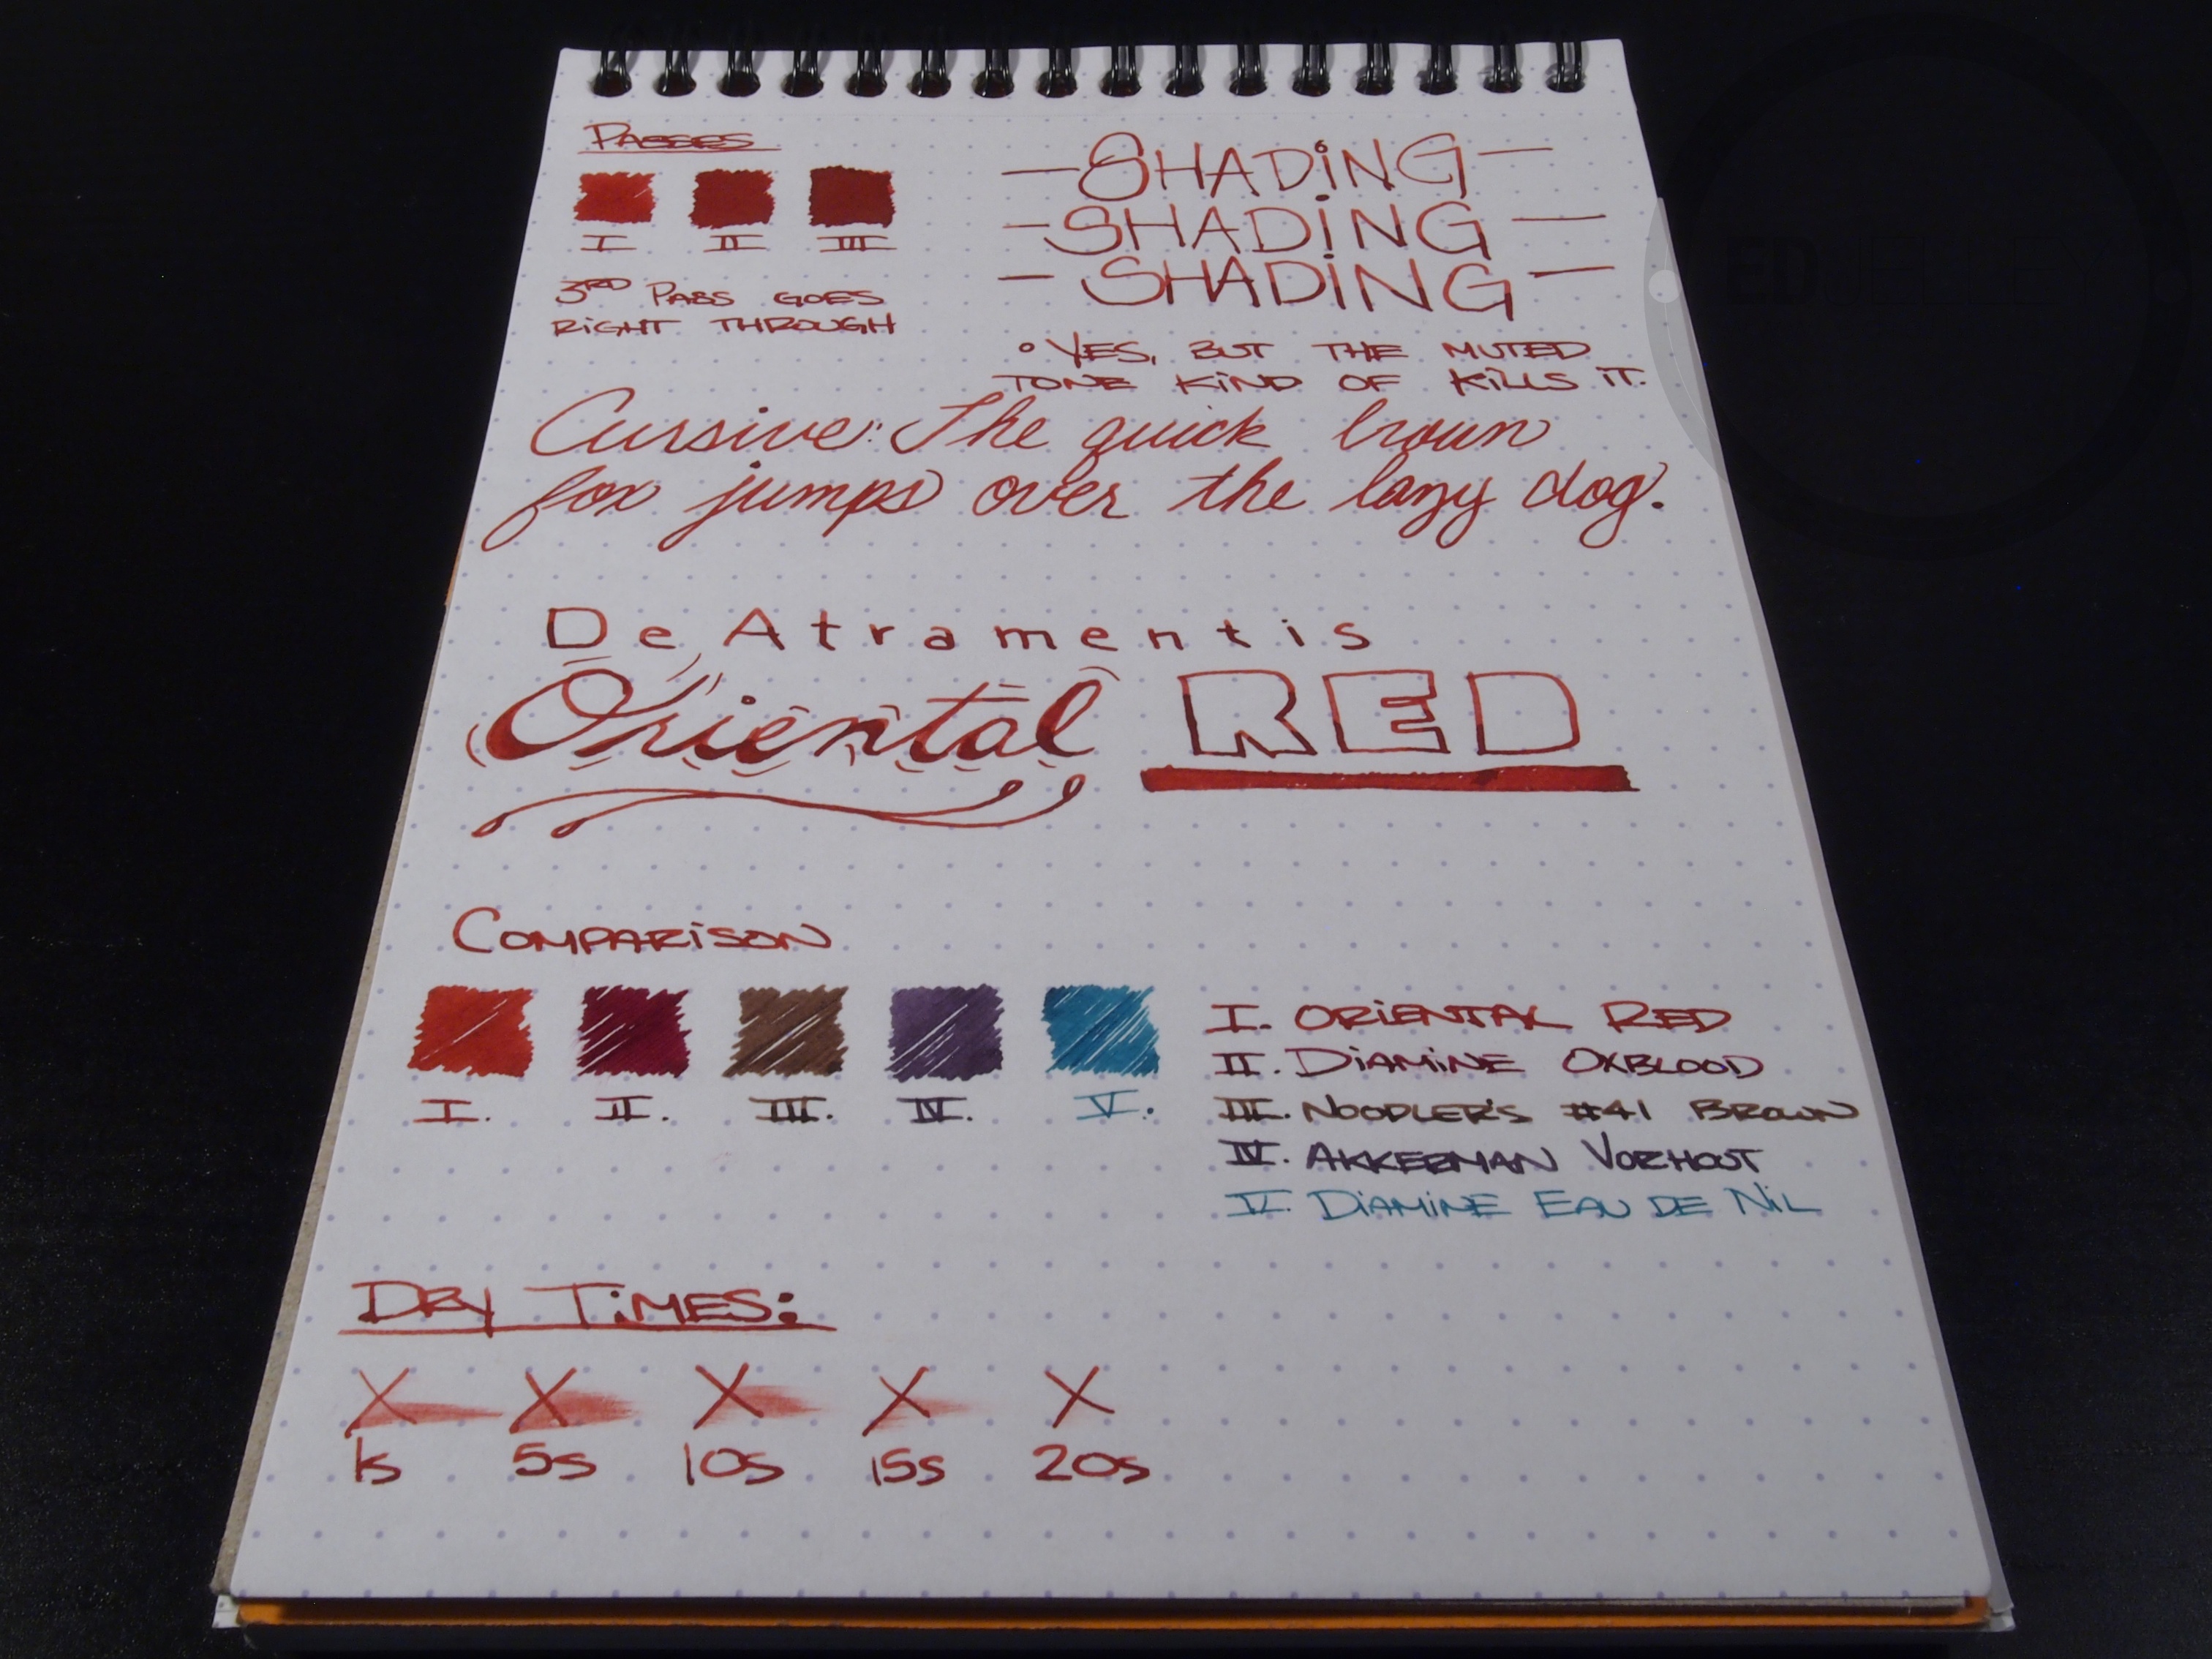 PASSES
I II III
3RD PASS GOES
RIGHT THROUGH
—SHADING—
—SHADING—
—SHADING—
° YES, BUT THE MUTED
TONE KIND OF KILLS IT.
Cursive: The quick brown
fox jumps over the lazy dog.
De Atramentis
Oriental RED
COMPARISON
I. II. III. IV. V.
I. ORIENTAL RED
II. DIAMINE OXBLOOD
III. NOODLER'S #41 BROWN
IV. AKKERMAN VORHOUT
V. DIAMINE EAU DE NIL
DRY TIMES:
X X X X X
1s 5s 10s 15s 20s